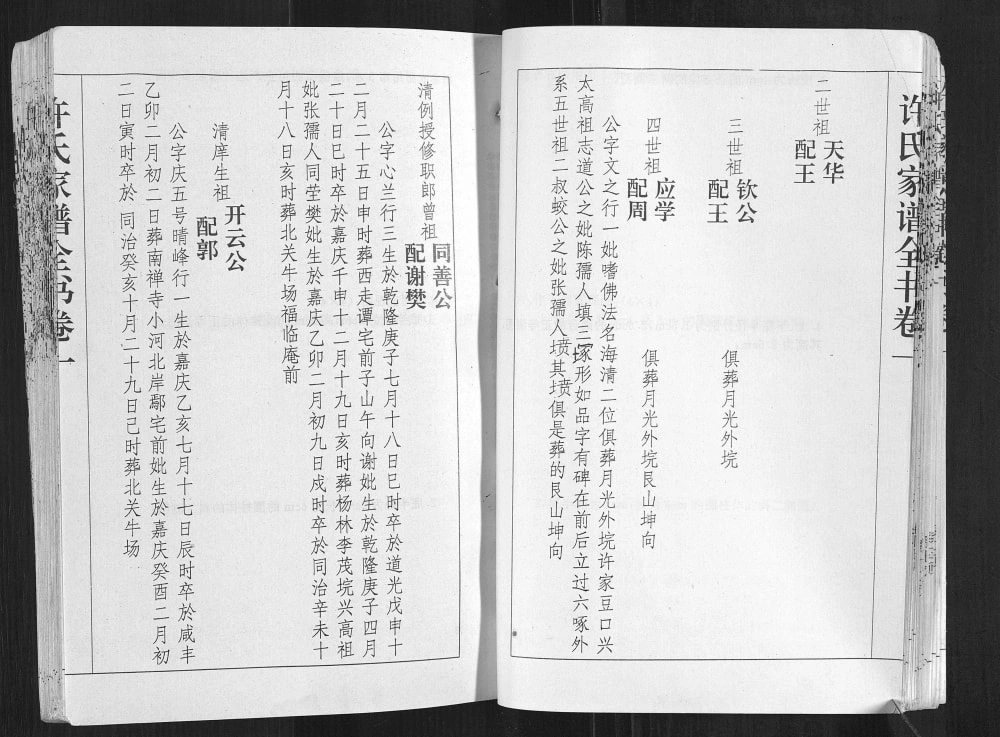 许氏家谱全书卷一
二世祖
天华
配王
三世祖
钦公
配王
俱葬月光外垸
四世祖
应学
配周
俱葬月光外垸艮山坤向
公字文之行一妣嗜佛法名海清二位俱葬月光外垸许家豆口兴
太高祖志道公之妣陈孺人填三塚形如品字有碑在前后立过六啄外
系五世祖二叔蛟公之妣张孺人坟其坟俱是葬的艮山坤向
清例授修职郎曾祖
同善公
配谢樊
公字心兰行三生於乾隆庚子七月十八日巳时卒於道光戊申十
二月二十五日申时葬西走谭宅前子山午向谢妣生於乾隆庚子四月
二十日巳时卒於嘉庆千申十二月十九日亥时葬杨林李茂垸兴高祖
妣张孺人同茔樊妣生於嘉庆乙卯二月初九日戍时卒於同治辛未十
月十八日亥时葬北关牛场福临庵前
清庠生祖
开云公
配郭
公字庆五号晴峰行一生於嘉庆乙亥七月十七日辰时卒於咸丰
乙卯二月初二日葬南禅寺小河北岸鄢宅前妣生於嘉庆癸酉二月初
二日寅时卒於同治癸亥十月二十九日巳时葬北关牛场
许氏家谱全书卷一